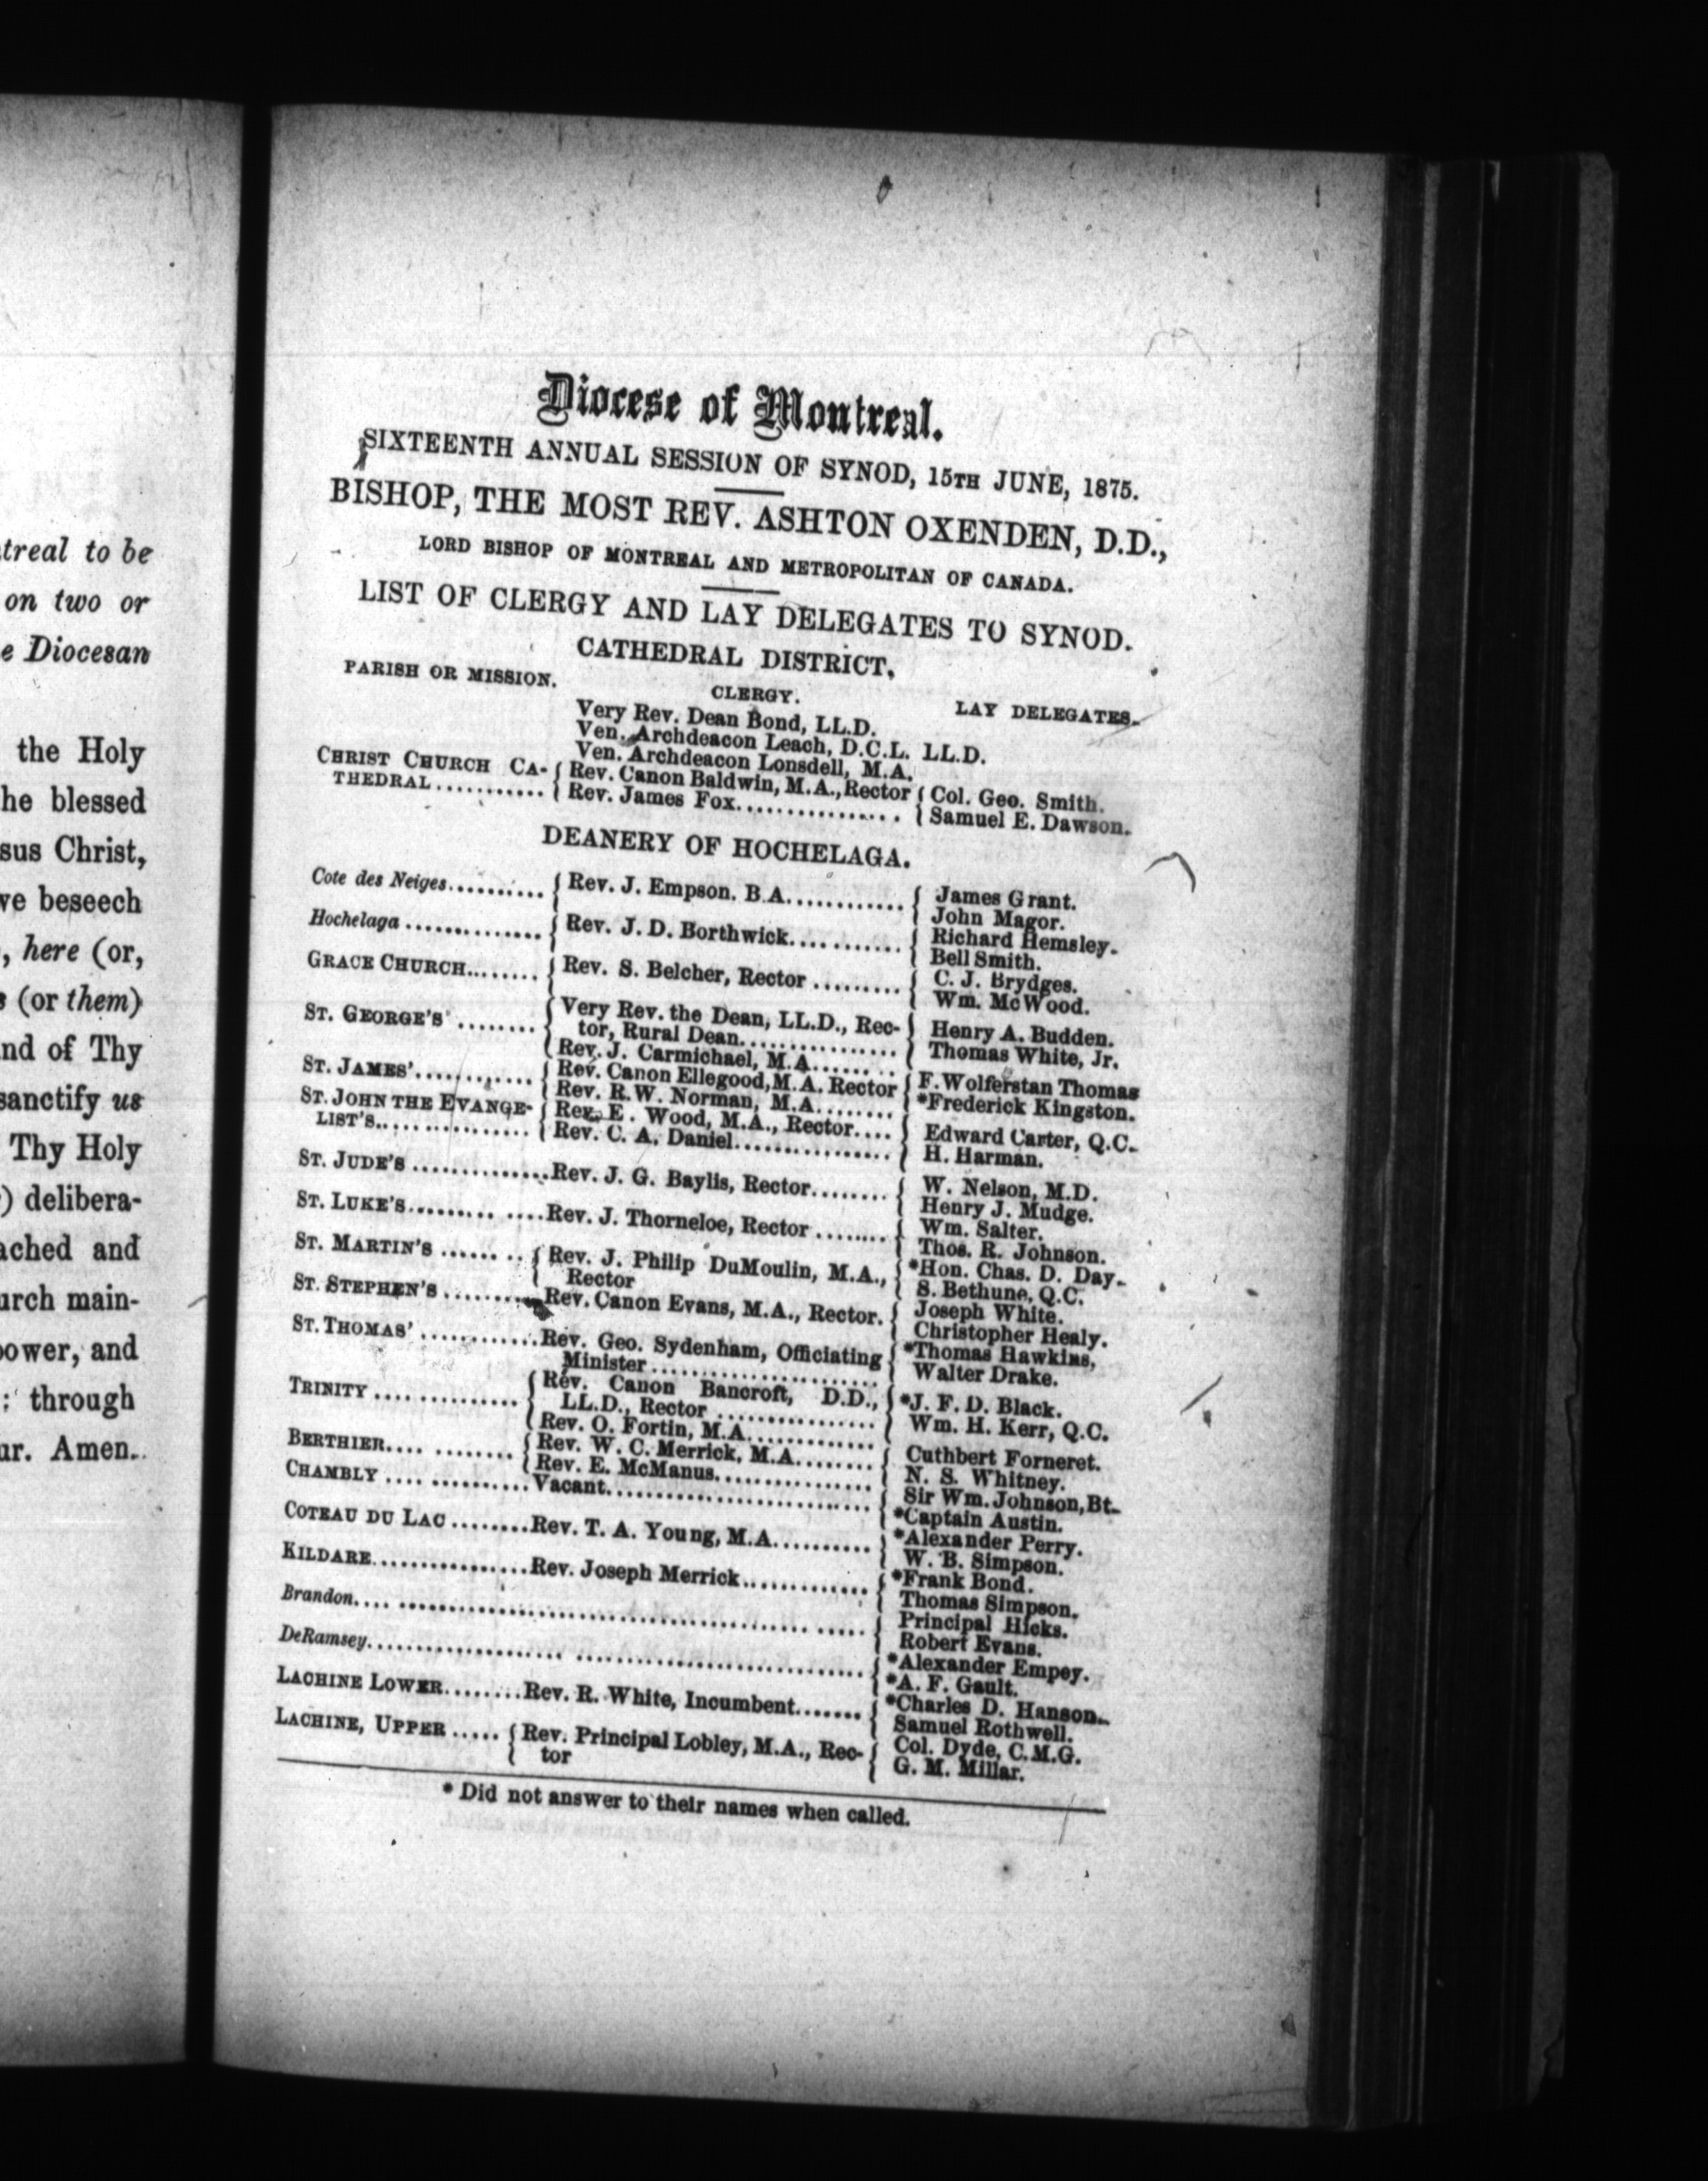 treal to be
on two or
e Diocesan
the Holy
he blessed
sus Christ,
ve beseech
, here (or,
s (or them)
nd of Thy
sanctify us
Thy Holy
) delibera-
ached and
urch main-
power, and
: through
ur. Amen.
Diocese of Montreal.
SIXTEENTH ANNUAL SESSION OF SYNOD, 15TH JUNE, 1875.
BISHOP, THE MOST REV. ASHTON OXENDEN, D.D.,
LORD BISHOP OF MONTREAL AND METROPOLITAN OF CANADA.
LIST OF CLERGY AND LAY DELEGATES TO SYNOD.
CATHEDRAL DISTRICT.
PARISH OR MISSION. CLERGY. LAY DELEGATES.
Very Rev. Dean Bond, LL.D.
Ven. Archdeacon Leach, D.C.L. LL.D.
Ven. Archdeacon Lonsdell, M.A.
CHRIST CHURCH CA- { Rev. Canon Baldwin, M.A., Rector { Col. Geo. Smith.
THEDRAL........... { Rev. James Fox............... { Samuel E. Dawson.
DEANERY OF HOCHELAGA.
Cote des Neiges.......... { Rev. J. Empson. B A............ { James Grant.
John Magor.
Hochelaga .............. { Rev. J. D. Borthwick........... { Richard Hemsley.
Bell Smith.
GRACE CHURCH........ { Rev. S. Belcher, Rector ......... { C. J. Brydges.
Wm. McWood.
ST. GEORGE'S ........ { Very Rev. the Dean, LL.D., Rec- } Henry A. Budden.
tor, Rural Dean................ } Thomas White, Jr.
Rev. J. Carmichael, M.A........
ST. JAMES'............ { Rev. Canon Ellegood, M.A. Rector { F. Wolferstan Thomas
Rev. R. W. Norman, M.A........ { *Frederick Kingston.
ST. JOHN THE EVANGE- { Rev. E. Wood, M.A., Rector.... } Edward Carter, Q.C.
LIST'S................ { Rev. C. A. Daniel................ } H. Harman.
ST. JUDE'S ..............Rev. J. G. Baylis, Rector........ { W. Nelson, M.D.
Henry J. Mudge.
ST. LUKE'S......... ....Rev. J. Thorneloe, Rector ........ { Wm. Salter.
Thos. R. Johnson.
ST. MARTIN'S ...... .. { Rev. J. Philip DuMoulin, M.A., { *Hon. Chas. D. Day.
Rector { S. Bethune, Q.C.
ST. STEPHEN'S ..........Rev. Canon Evans, M.A., Rector. { Joseph White.
Christopher Healy.
ST. THOMAS' ............Rev. Geo. Sydenham, Officiating { *Thomas Hawkins,
Minister....................... { Walter Drake.
TRINITY .............. { Rev. Canon Bancroft, D.D., { *J. F. D. Black.
LL.D., Rector ................ { Wm. H. Kerr, Q.C.
Rev. O. Fortin, M.A.............
BERTHIER.... ........ { Rev. W. C. Merrick, M.A........ { Cuthbert Forneret.
Rev. E. McManus............... { N. S. Whitney.
CHAMBLY .... ..........Vacant.......................... { Sir Wm. Johnson, Bt.
*Captain Austin.
COTEAU DU LAC ........Rev. T. A. Young, M.A.......... } *Alexander Perry.
W. B. Simpson.
KILDARE...............Rev. Joseph Merrick............. { *Frank Bond.
Thomas Simpson.
Brandon.... ............................................. ..... { Principal Hicks.
Robert Evans.
DeRamsey.................... ............................. { *Alexander Empey.
*A. F. Gault.
LACHINE LOWER........Rev. R. White, Incumbent....... { *Charles D. Hanson.
Samuel Rothwell.
LACHINE, UPPER ..... { Rev. Principal Lobley, M.A., Rec- { Col. Dyde, C.M.G.
tor { G. M. Millar.
* Did not answer to their names when called.